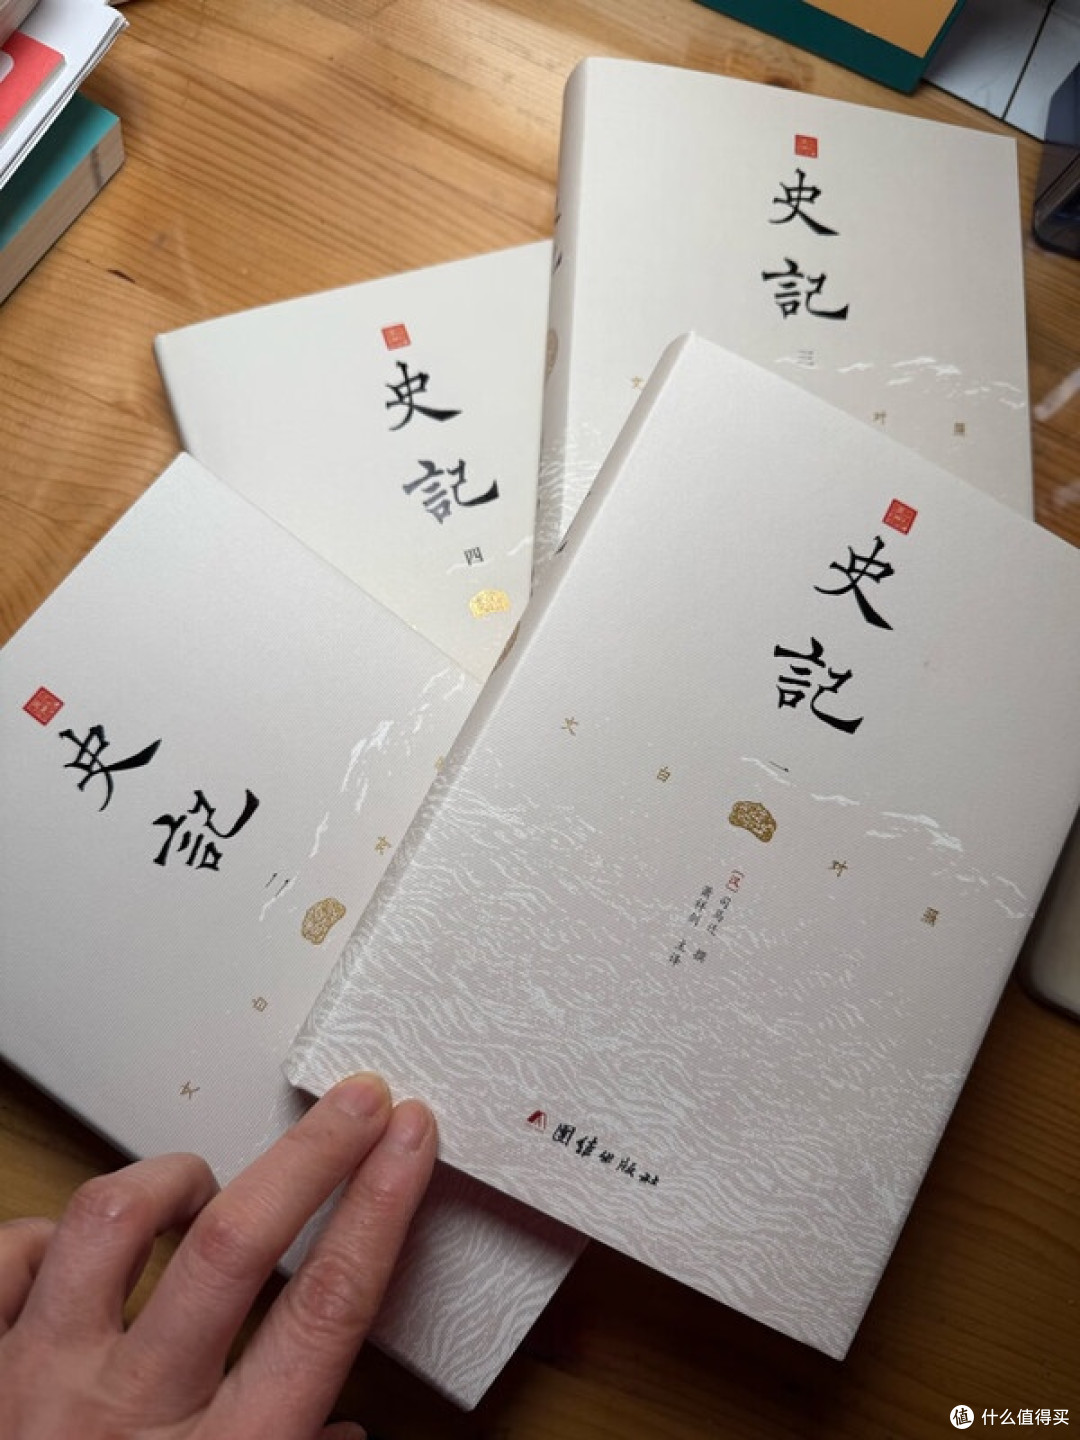 史記
三
对照
史記
四
史記
一
文白对照
〔汉〕司马迁 撰
萧祥剑 主译
團结出版社
史記
二
文白
值 什么值得买